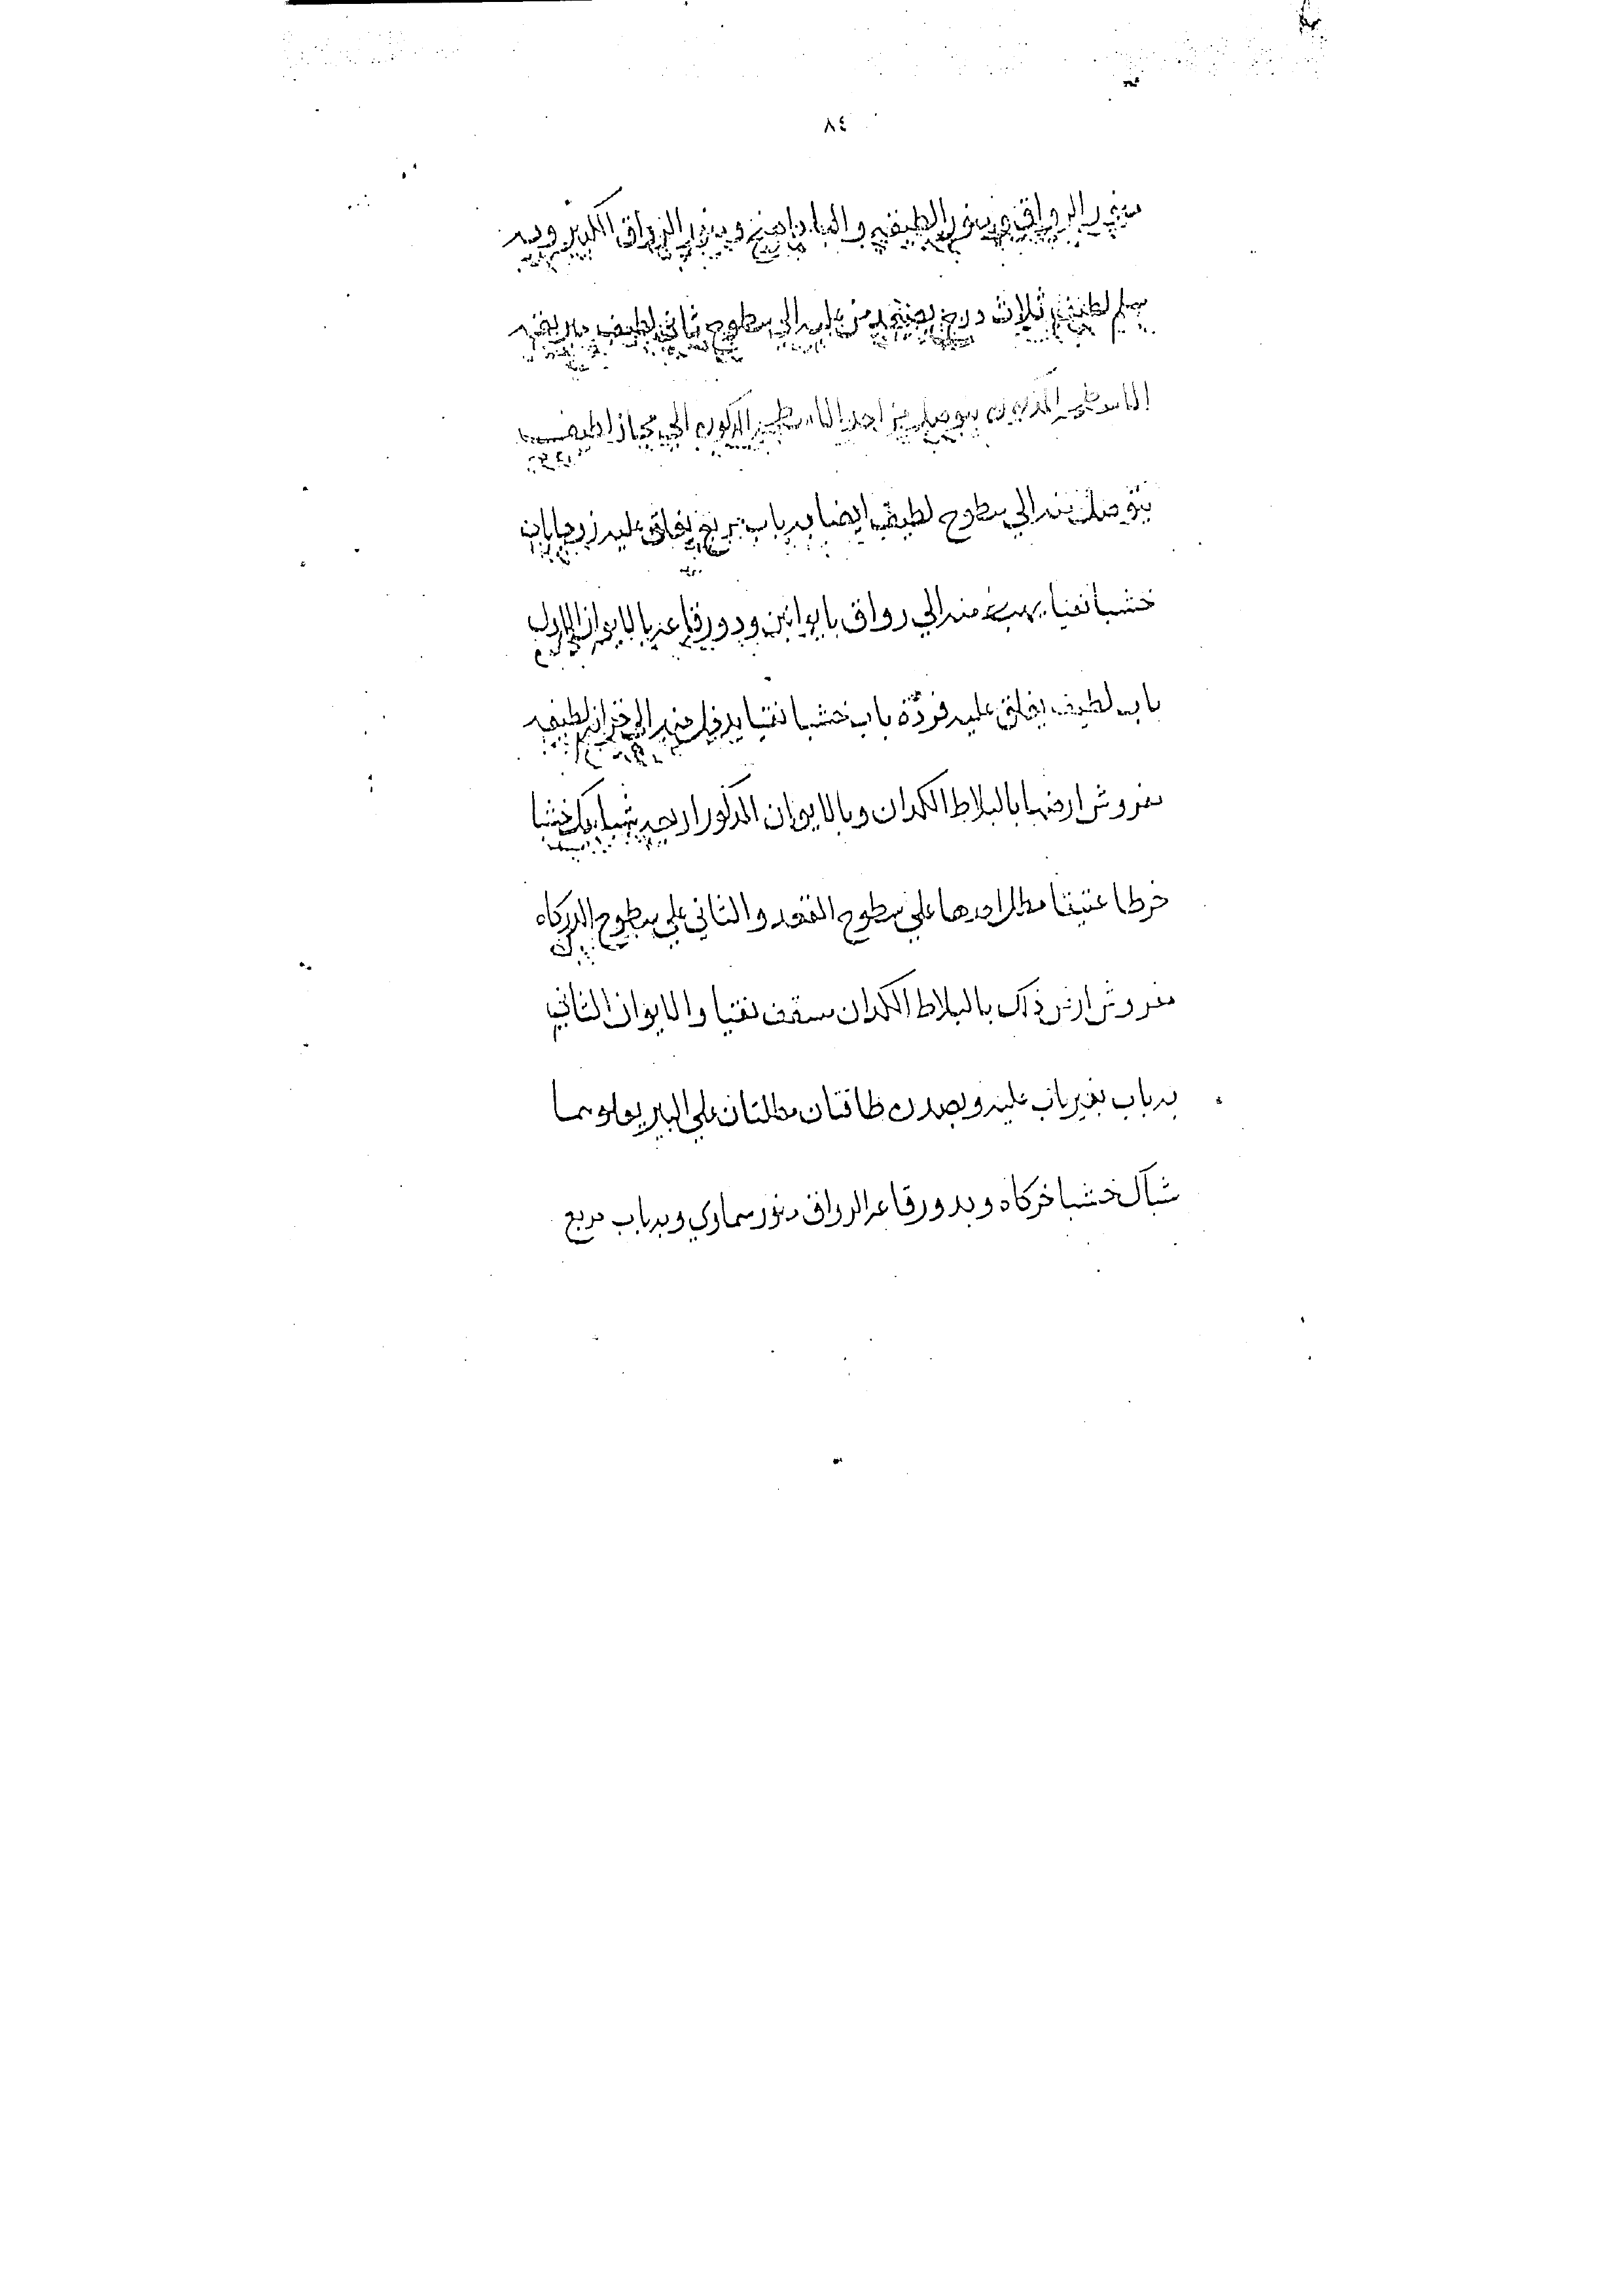 ٨٤
منور الرواق ومنور الطبقه والبادهنج ومنور الرواق الكبير وبه
سلم لطيف ثلاث درج يصعد من عليه الي سطوح ثاني لطيف به بقيه
الاسطحه المذكوره يتوصل من احد الاسطحه المذكوره الي مجاز لطيف
يتوصل منه الي سطوح لطيف ايضا به باب مربع يغلق عليه زوجا باب
خشبا نقيا منه الي رواق بايوانين ودورقاعه بالايوان الاول
باب لطيف يغلق عليه فردة باب خشبا نقيا يدخل منه الي خزانه لطيفه
مفروش ارضها بالبلاط الكدان وبالايوان المذكور احد شبابيك خشبا
خرطا عتيقا مطل احدها علي سطوح المقعد والثاني علي سطوح الدركاه
مفروش ارض ذلك بالبلاط الكدان مسقف نقيا والايوان الثاني
به باب بغير باب عليه وبصدره طاقتان مطلتان علي البير يعلوهما
شباك خشبا خركاه وبدورقاعه الرواق منور سماوي وبه باب مربع